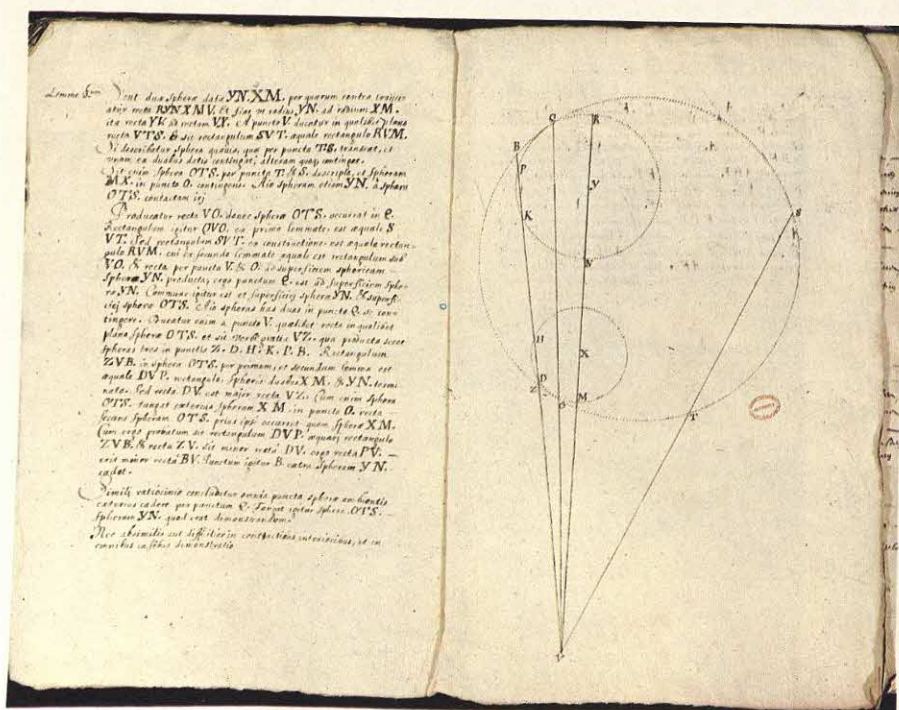 Lemma 5.um
Sint duæ sphæræ datæ YN. XM, per quarum centra trajiciatur
recta RYNXMV. Et fiat ut radius YN. ad radium XM,
ita recta YV. ad rectam VX. A puncto V. ducatur in quolibet plano
recta VTS. & sit rectangulum SVT. æquale rectangulo RVM.
Si describatur sphæra quævis, quæ per puncta T.S. transeat, et
unam ex duabus datis contingat, alteram quoque continget.
Sit enim sphæra OTS. per puncta T. & S. descripta, et sphæram
MX, in puncto O. contingens. Aio sphæram etiam YN. a sphæra
OTS. contactam iri
Producatur recta VO. donec sphæræ OTS. occurrat in Q.
Rectangulum igitur QVO, ex primo lemmate est æquale S
VT. Sed rectangulum SVT. ex constructione est æquale rectangulo
RVM, cui ex secundo lemmate æquale est rectangulum sub
VO. & recta per puncta V. & O. ad superficiem sphæricam
sphæræ YN. producta, ergo punctum Q. est ad superficiem sphæræ
YN. Commune igitur est et superficiei sphæræ YN. & superficiei
sphæræ OTS. Aio sphæras has duas in puncto Q. se contingere.
Ducatur enim a puncto V. quælibet recta in quolibet
plano sphæræ OTS. et sit verbi gratia VZ. quæ producta secet
sphæras tres in punctis Z. D. H. K. P. B. Rectangulum
ZVB. in sphæra OTS. per primum, et secundum lemma est
æquale DVP. rectangulo, sphæris duabus XM, & YN. terminato.
Sed recta DV. est major recta VZ. Cum enim sphæra
OTS. tangat exterius sphæram XM. in puncto O. recta
secans sphæram OTS. prius ipsi occurret quam sphæræ XM.
Cum ergo probatum sit rectangulum DVP. æquari rectangulo
ZVB. & recta ZV. sit minor recta DV. ergo recta PV.
erit minor recta BV. Punctum igitur B. extra sphæram YN.
cadet.
Simili ratiocinio concludetur omnia puncta sphæræ ambientis
exterius cadere per punctum Q. Tanget igitur sphæra OTS.
sphæram YN. quod erat demonstrandum.
Nec absimilis aut difficilior in contactibus interioribus, et in
omnibus casibus demonstratio
Q
R
B
P
Y
K
S
N
H
X
D
Z
O
M
T
V